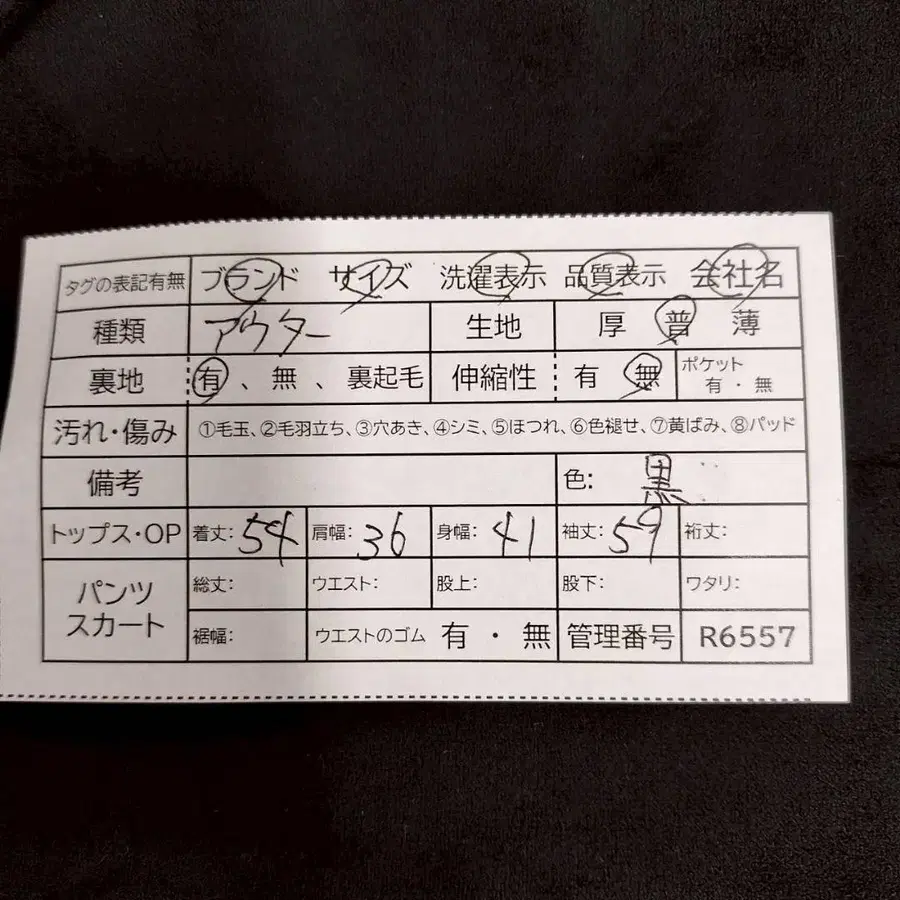 タグの表記有無 ブランド サイズ 洗濯表示 品質表示 会社名
種類 アウター 生地 厚 普 薄
裏地 有 、 無 、 裏起毛 伸縮性 有 無 ポケット 有 ・ 無
汚れ・傷み ①毛玉、②毛羽立ち、③穴あき、④シミ、⑤ほつれ、⑥色褪せ、⑦黄ばみ、⑧パッド
備考 色: 黒
トップス・OP 着丈: 54 肩幅: 36 身幅: 41 袖丈: 59 裄丈:
パンツ スカート 総丈: ウエスト: 股上: 股下: ワタリ:
裾幅: ウエストのゴム 有 ・ 無 管理番号 R6557